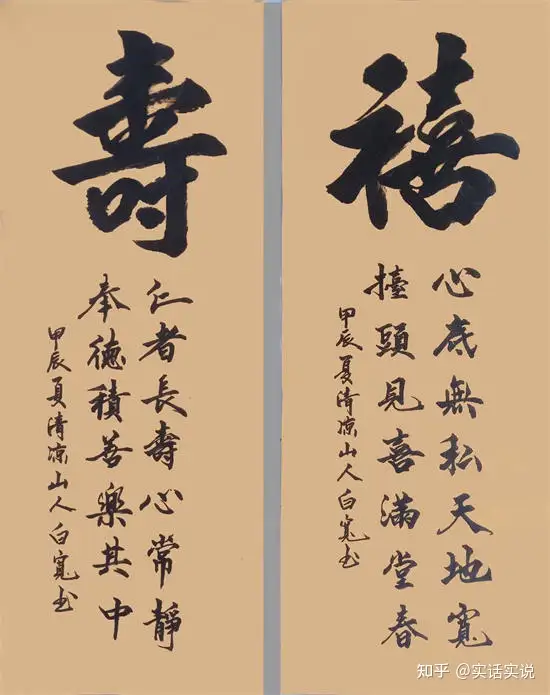 禧
心底無私天地寬
擡頭見喜滿堂春
甲辰夏清凉山人白寬书
壽
仁者長壽心常靜
奉德積善樂其中
甲辰夏清凉山人白寬书
知乎 @实话实说